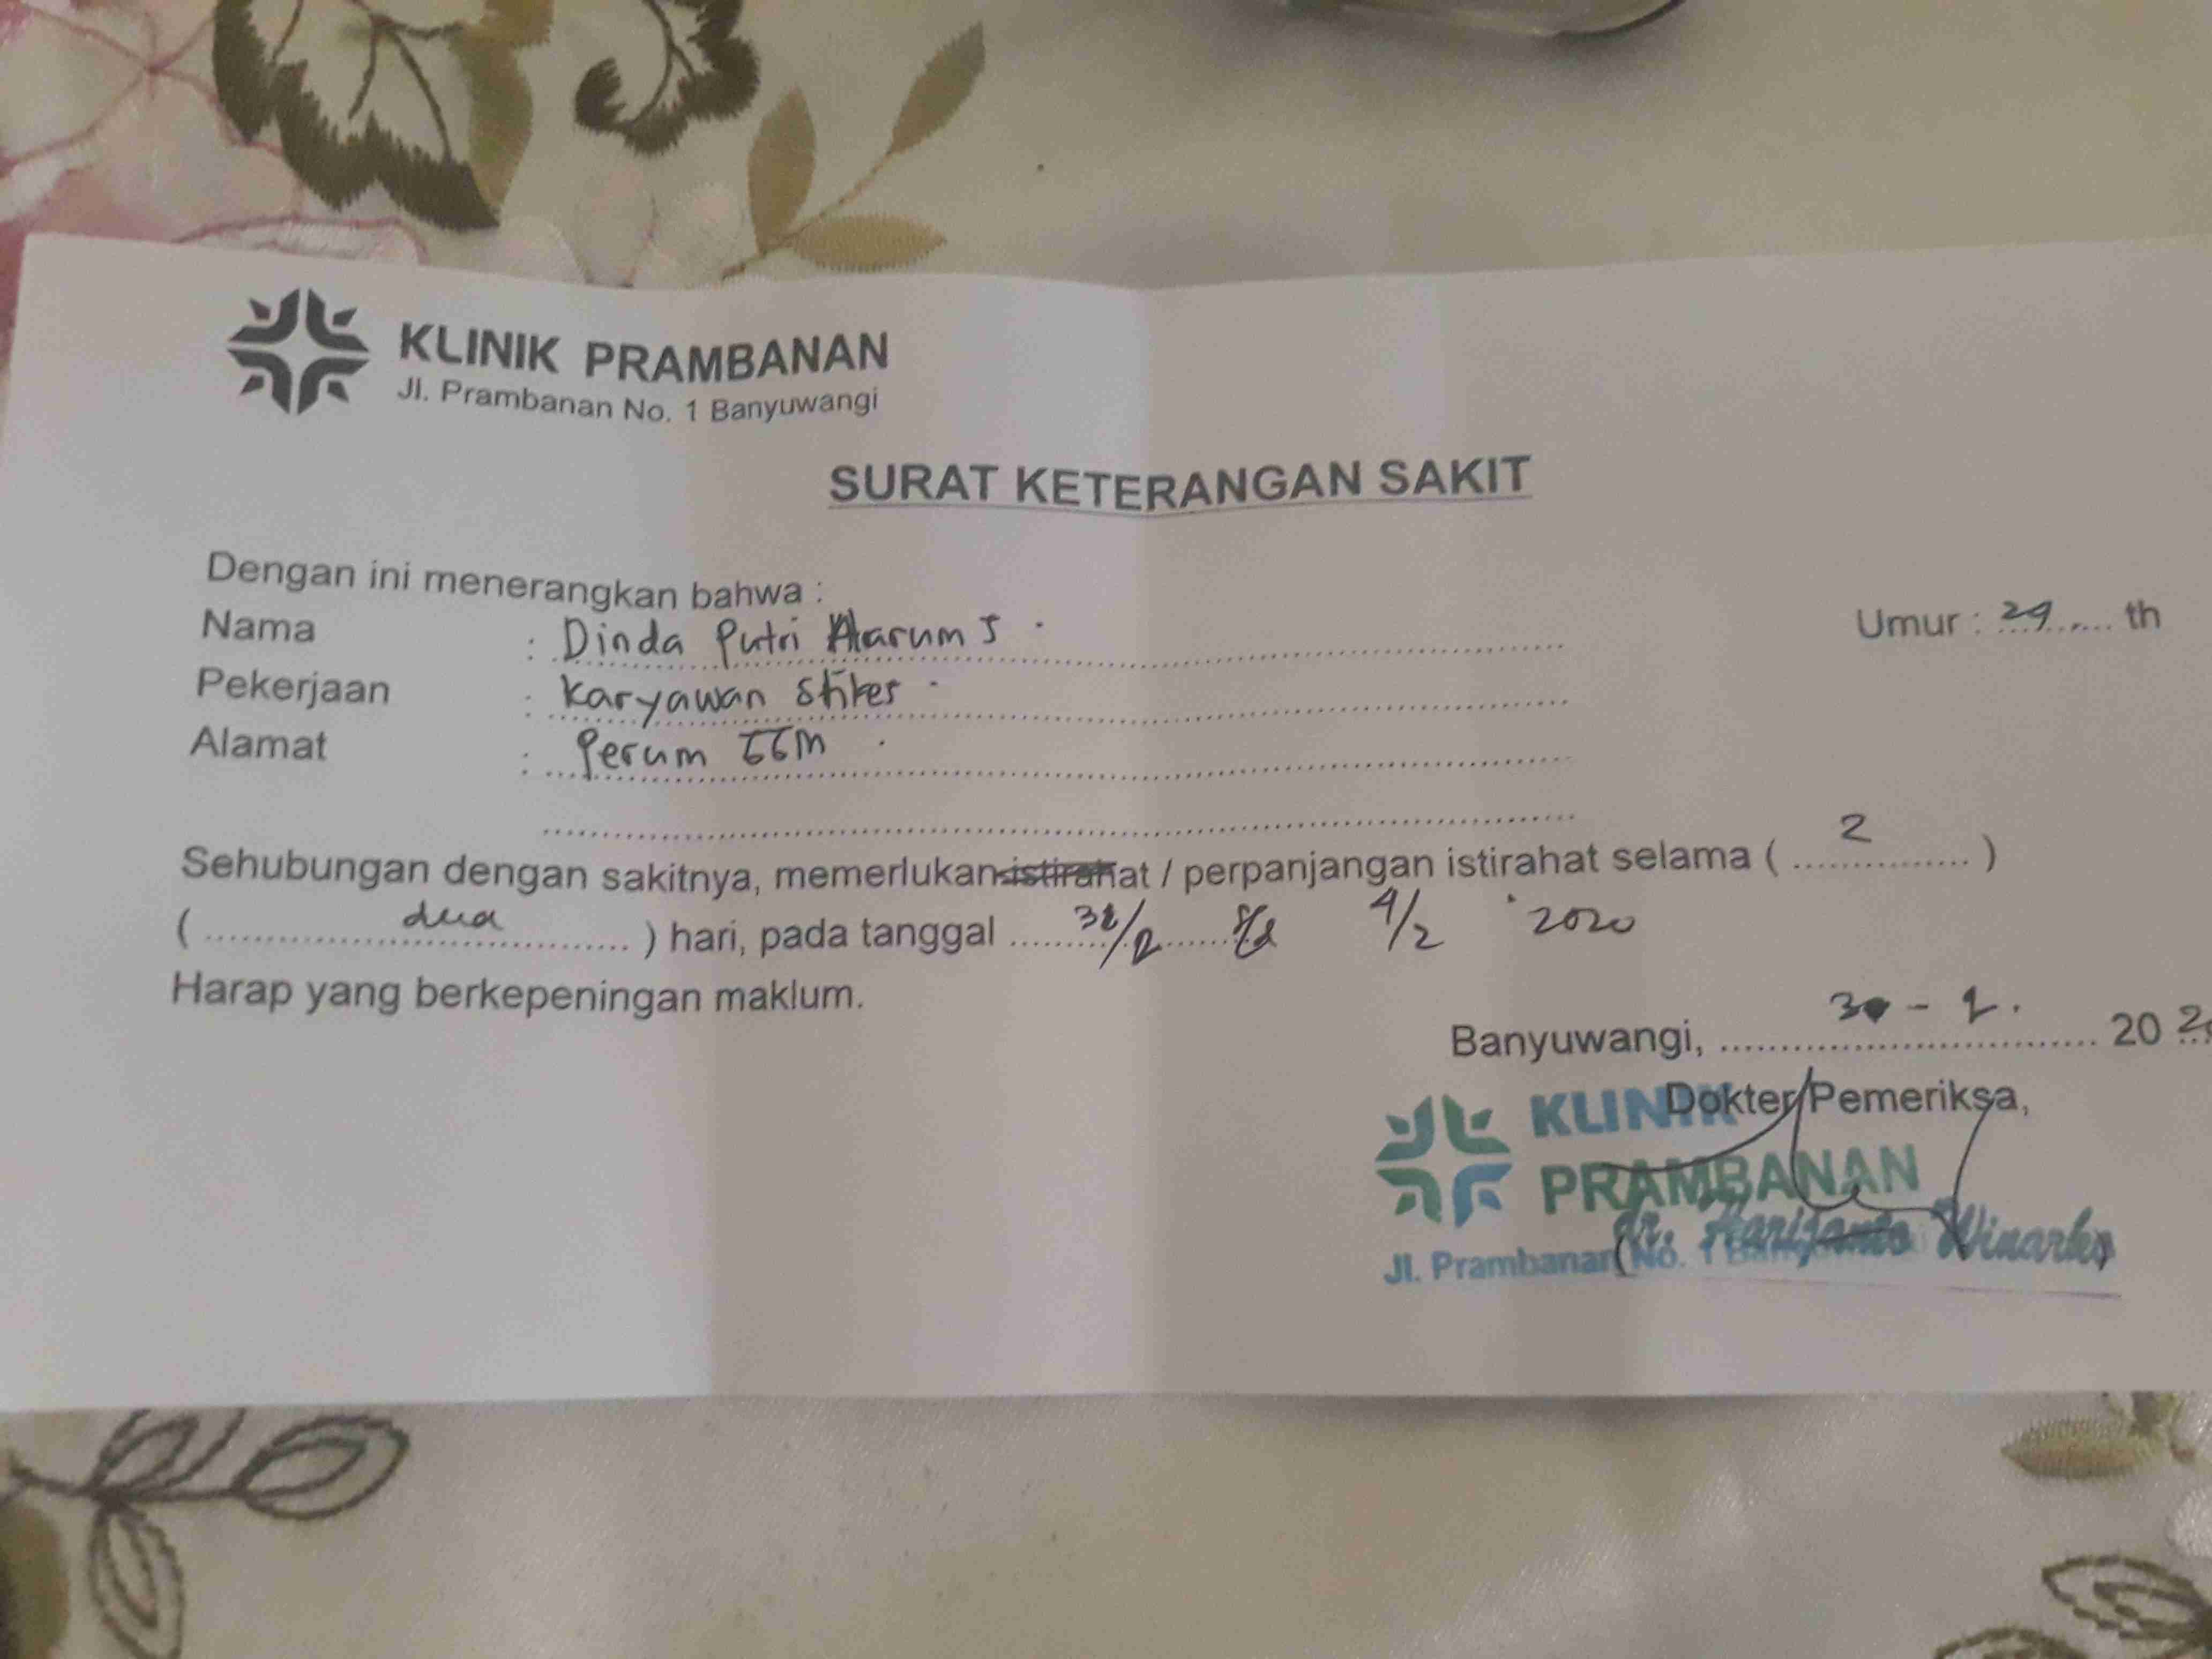 KLINIK PRAMBANAN
Jl. Prambanan No. 1 Banyuwangi
SURAT KETERANGAN SAKIT
Dengan ini menerangkan bahwa :
Nama : Dinda Putri Harum S . Umur : 29 th
Pekerjaan : Karyawan Stikes .
Alamat : Perum .
Sehubungan dengan sakitnya, memerlukan istirahat / perpanjangan istirahat selama ( 2 )
( dua ) hari, pada tanggal /2 s/d 4/2 2020
Harap yang berkepeningan maklum.
Banyuwangi, 20
Dokter Pemeriksa,
KLINIK
PRAMBANAN
Jl. Prambanan No. 1